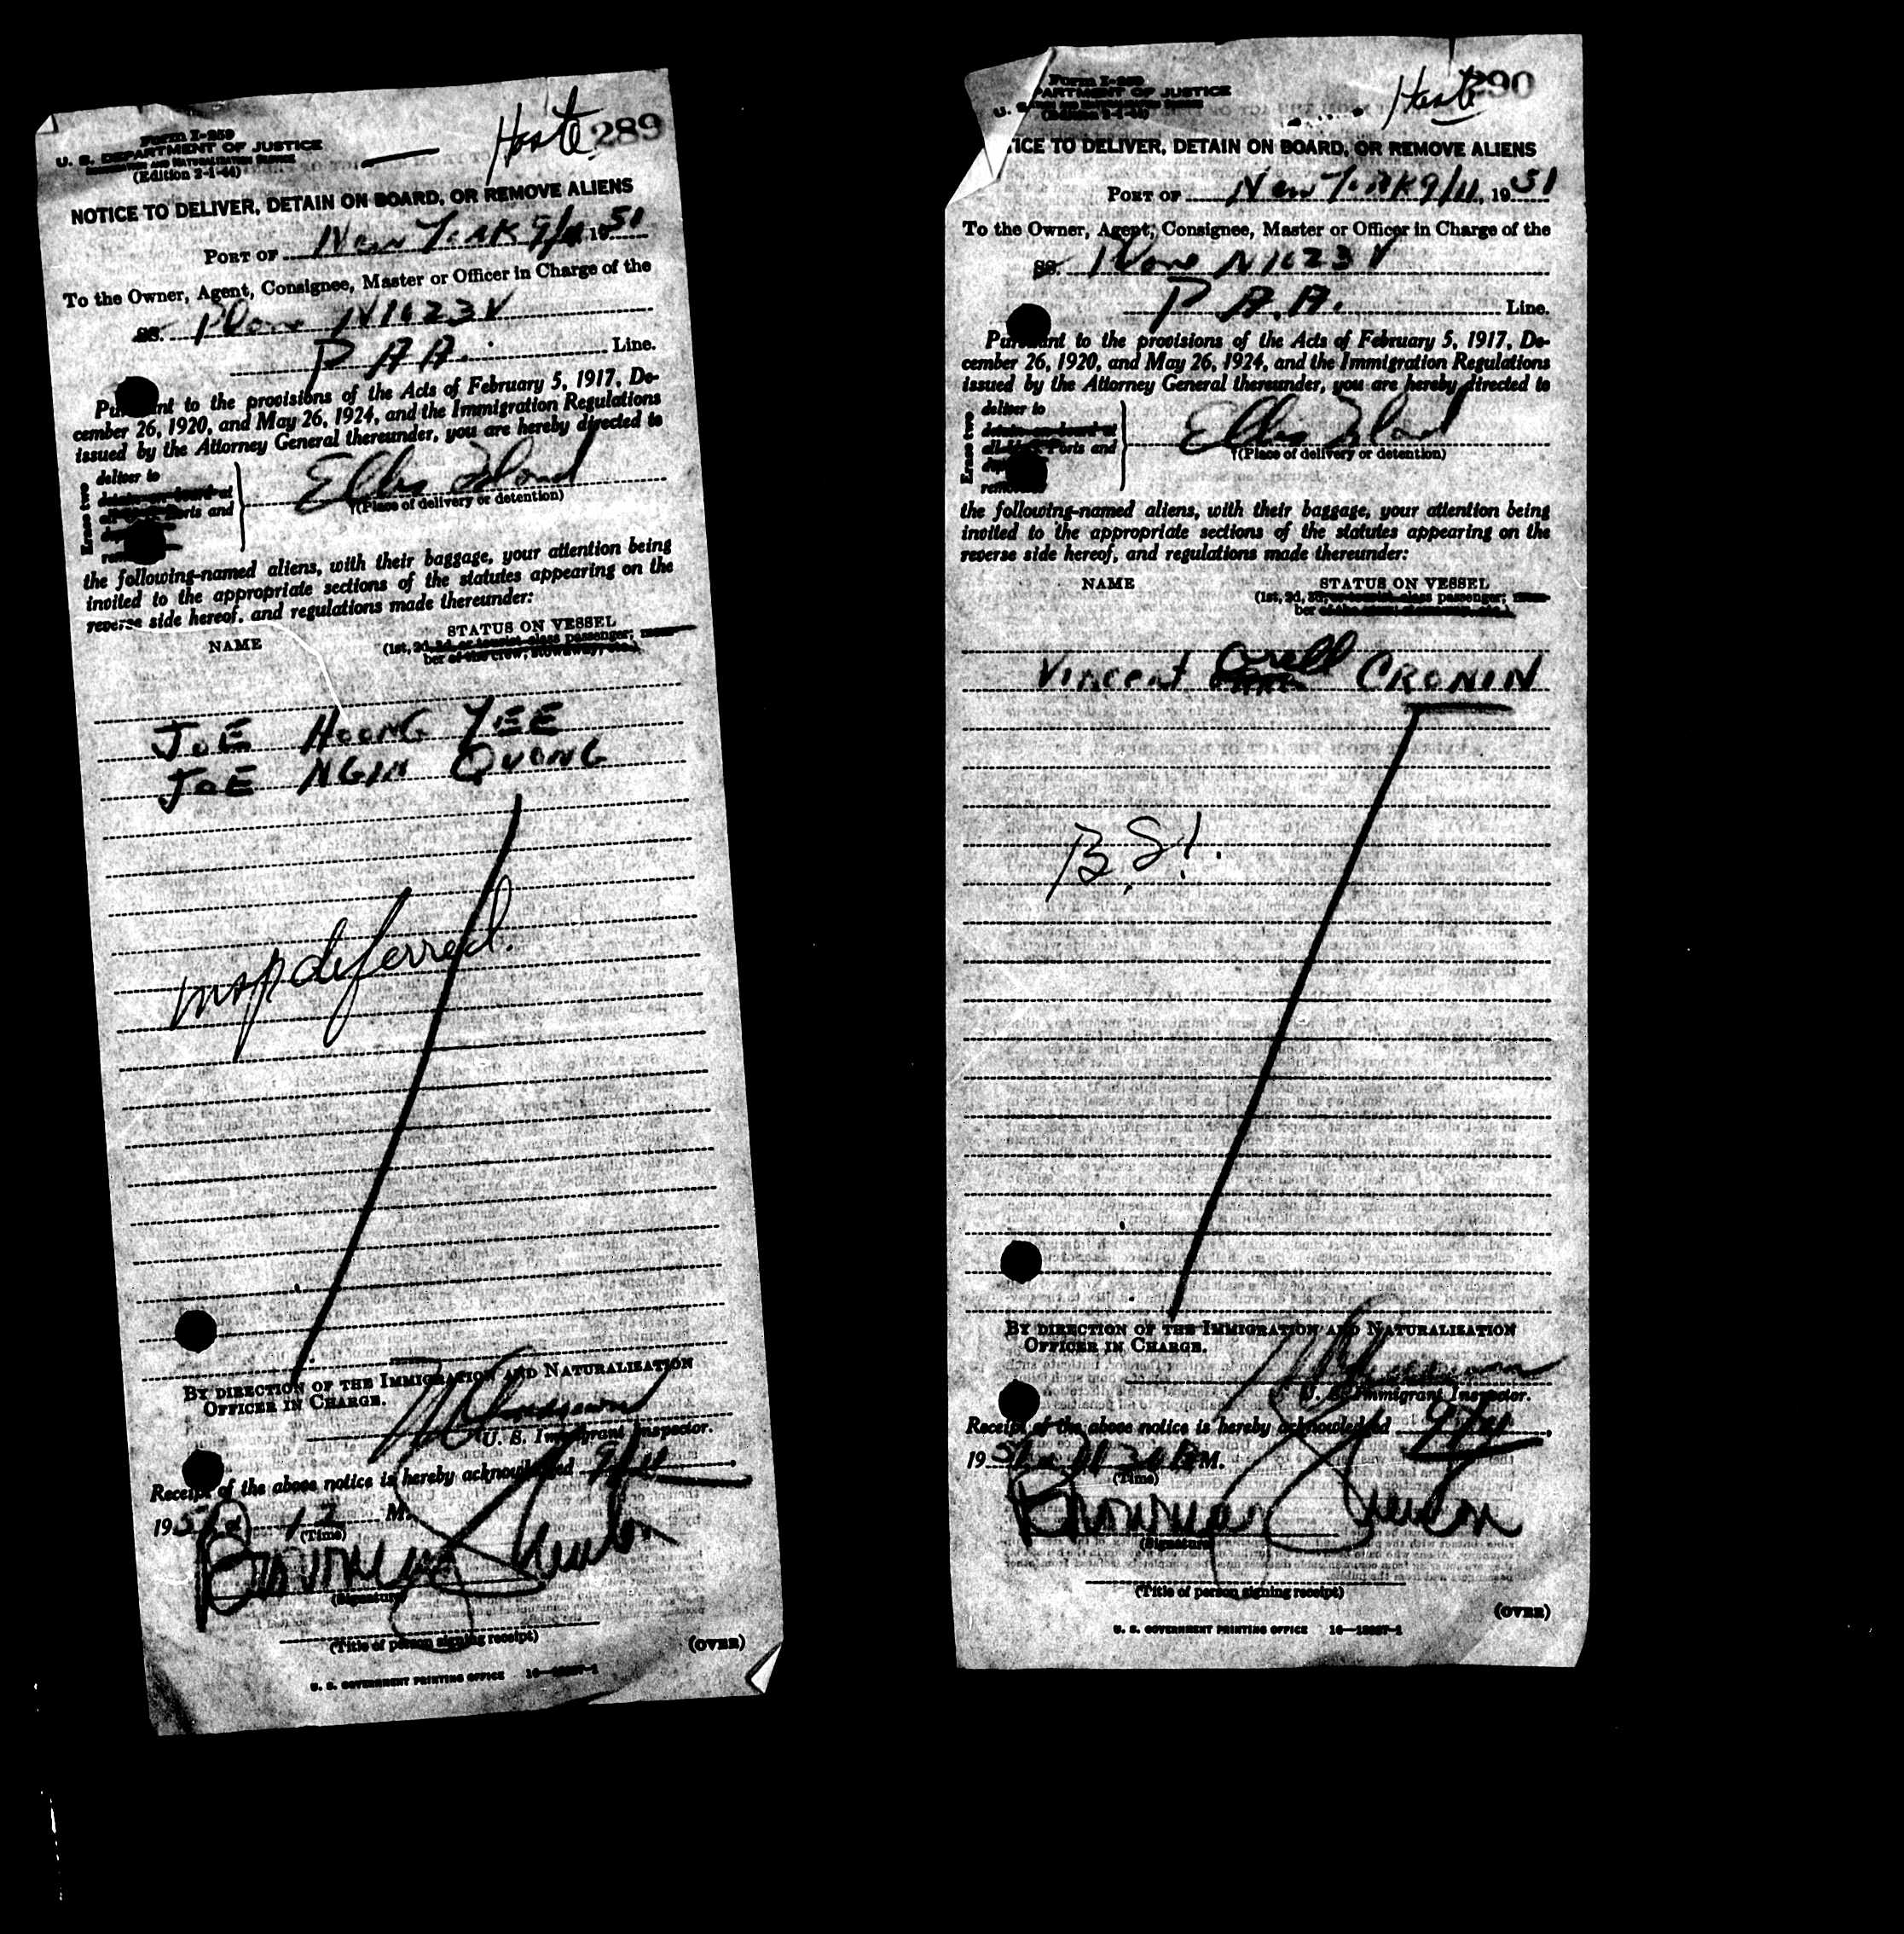 Form I-259
U. S. DEPARTMENT OF JUSTICE
IMMIGRATION AND NATURALIZATION SERVICE
(Edition 2-1-44)
289
NOTICE TO DELIVER, DETAIN ON BOARD, OR REMOVE ALIENS
PORT OF New York 9/11, 1951
To the Owner, Agent, Consignee, Master or Officer in Charge of the
SS. Plane N1023V
P A A. Line.
Pursuant to the provisions of the Acts of February 5, 1917, De-
cember 26, 1920, and May 26, 1924, and the Immigration Regulations
issued by the Attorney General thereunder, you are hereby directed to
Erase two
deliver to
detain on board at
Ports and
Ellis Island
(Place of delivery or detention)
the following-named aliens, with their baggage, your attention being
invited to the appropriate sections of the statutes appearing on the
reverse side hereof, and regulations made thereunder:
NAME STATUS ON VESSEL
(1st, 2d, 3d, or tourist-class passenger; mem-
ber of the crew, stowaway, etc.)
JOE HOONG YEE
JOE NGIN QUONG
insp deferred.
BY DIRECTION OF THE IMMIGRATION AND NATURALIZATION
OFFICER IN CHARGE.
U. S. Immigrant Inspector.
Receipt of the above notice is hereby acknowledged 9/11,
1951 at 12 M.
(Time)
(Signature)
(Title of person signing receipt)
(OVER)
U. S. GOVERNMENT PRINTING OFFICE
Form I-259
PARTMENT OF JUSTICE
U. S.
(Edition 2-1-44)
290
TICE TO DELIVER, DETAIN ON BOARD, OR REMOVE ALIENS
PORT OF New York 9/11, 1951
To the Owner, Agent, Consignee, Master or Officer in Charge of the
SS. Plane N1023V
P A.A. Line.
Pursuant to the provisions of the Acts of February 5, 1917, De-
cember 26, 1920, and May 26, 1924, and the Immigration Regulations
issued by the Attorney General thereunder, you are hereby directed to
Erase two
deliver to
detain on board at
Ports and
Ellis Island
(Place of delivery or detention)
the following-named aliens, with their baggage, your attention being
invited to the appropriate sections of the statutes appearing on the
reverse side hereof, and regulations made thereunder:
NAME STATUS ON VESSEL
(1st, 2d, 3d, or tourist-class passenger; mem-
ber of the crew, stowaway, etc.)
Vincent CRONIN
B.S.I.
BY DIRECTION OF THE IMMIGRATION AND NATURALIZATION
OFFICER IN CHARGE.
U. S. Immigrant Inspector.
Receipt of the above notice is hereby acknowledged 9/11,
1951 at 11 30 P M.
(Time)
(Signature)
(Title of person signing receipt)
(OVER)
U. S. GOVERNMENT PRINTING OFFICE